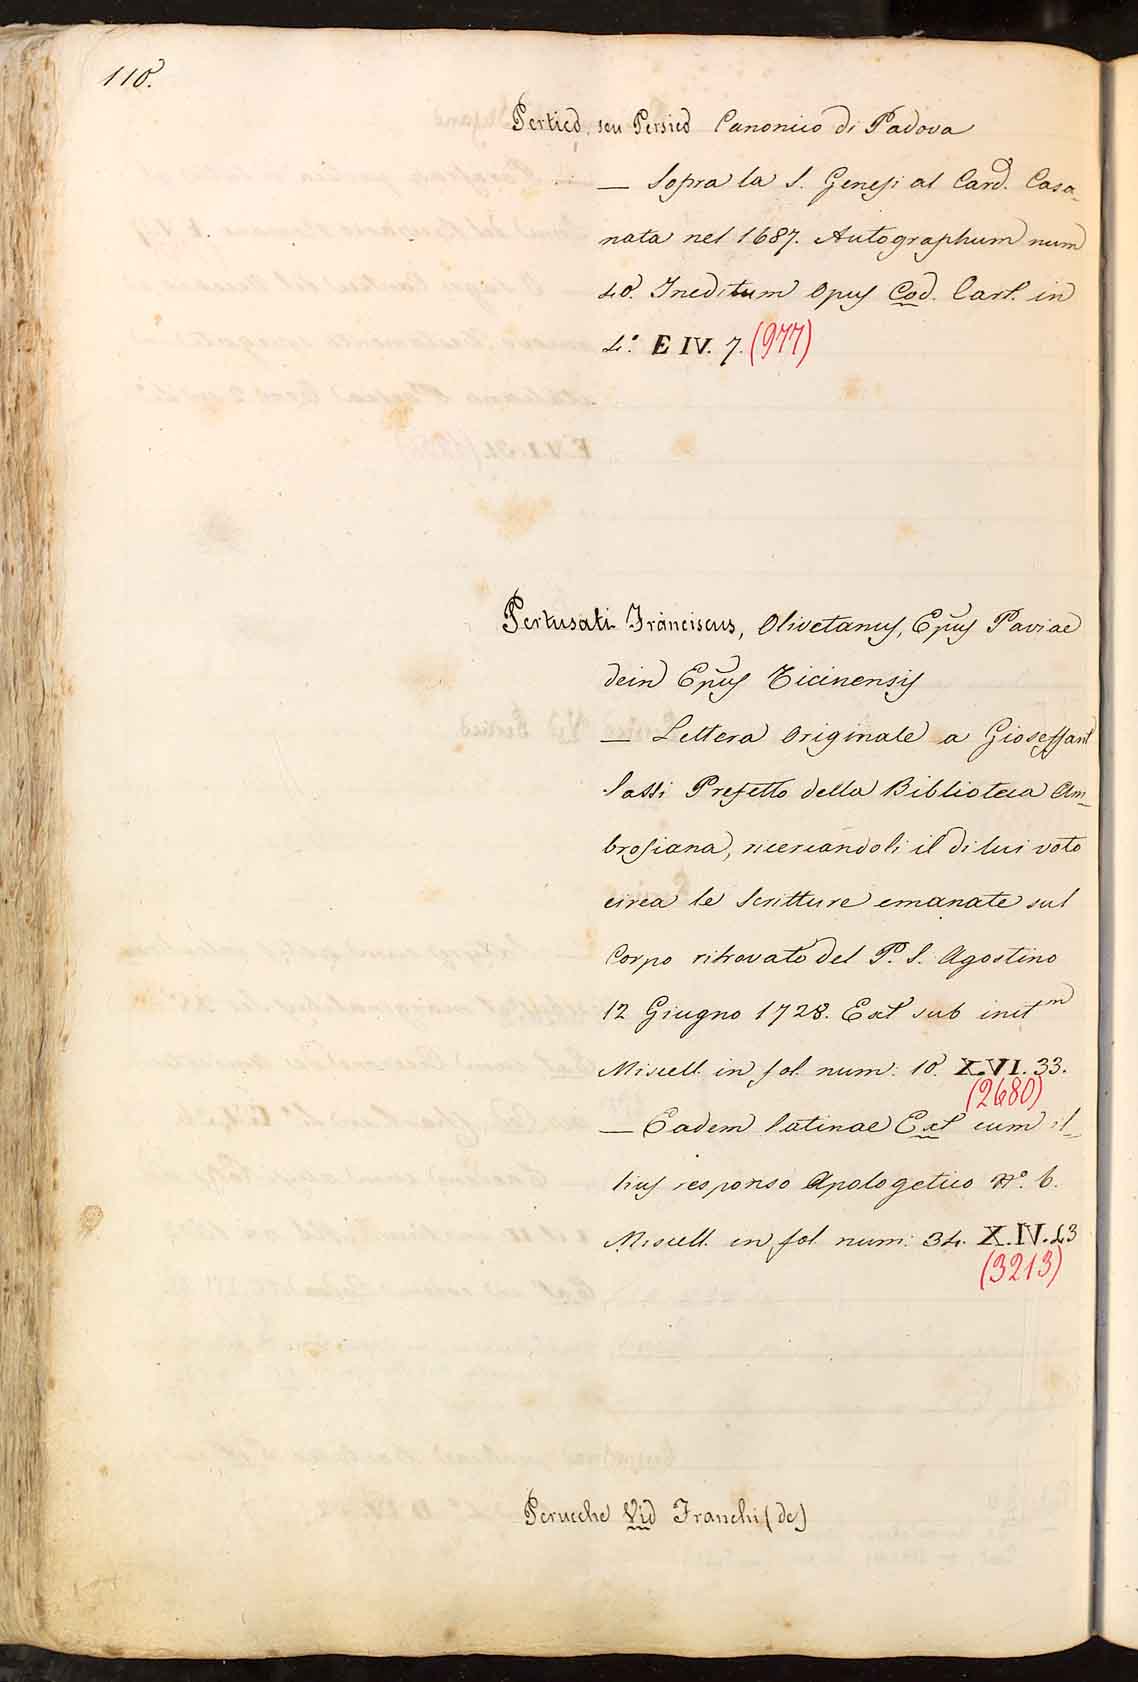 110.
Pertied, seu Persied Canonico di Padova
— Sopra la S. Genesi al Card. Casa-
nata nel 1687. Autographum num
40. Ineditum Opus Cod. Cart. in
4.° E IV. 7. (977)
Pertusati Franciscus, Olivetanus, Epus Paviae
dein Epus Ticinensis
— Lettera Originale a Gioseffant
Sassi Prefetto della Biblioteca Am-
brosiana, ricercandoli il di lui voto
circa le Scritture emanate sul
Corpo ritrovato del P. S. Agostino
12 Giugno 1728. Ext sub init m
Miscell. in fol. num: 10. X.VI. 33.
(2680)
— Eadem latinae Ext cum il-
lius responso Apologetico N.° 6.
Miscell. in fol. num: 34. X.IV.43
(3213)
Perucche Vid Franchi (de)